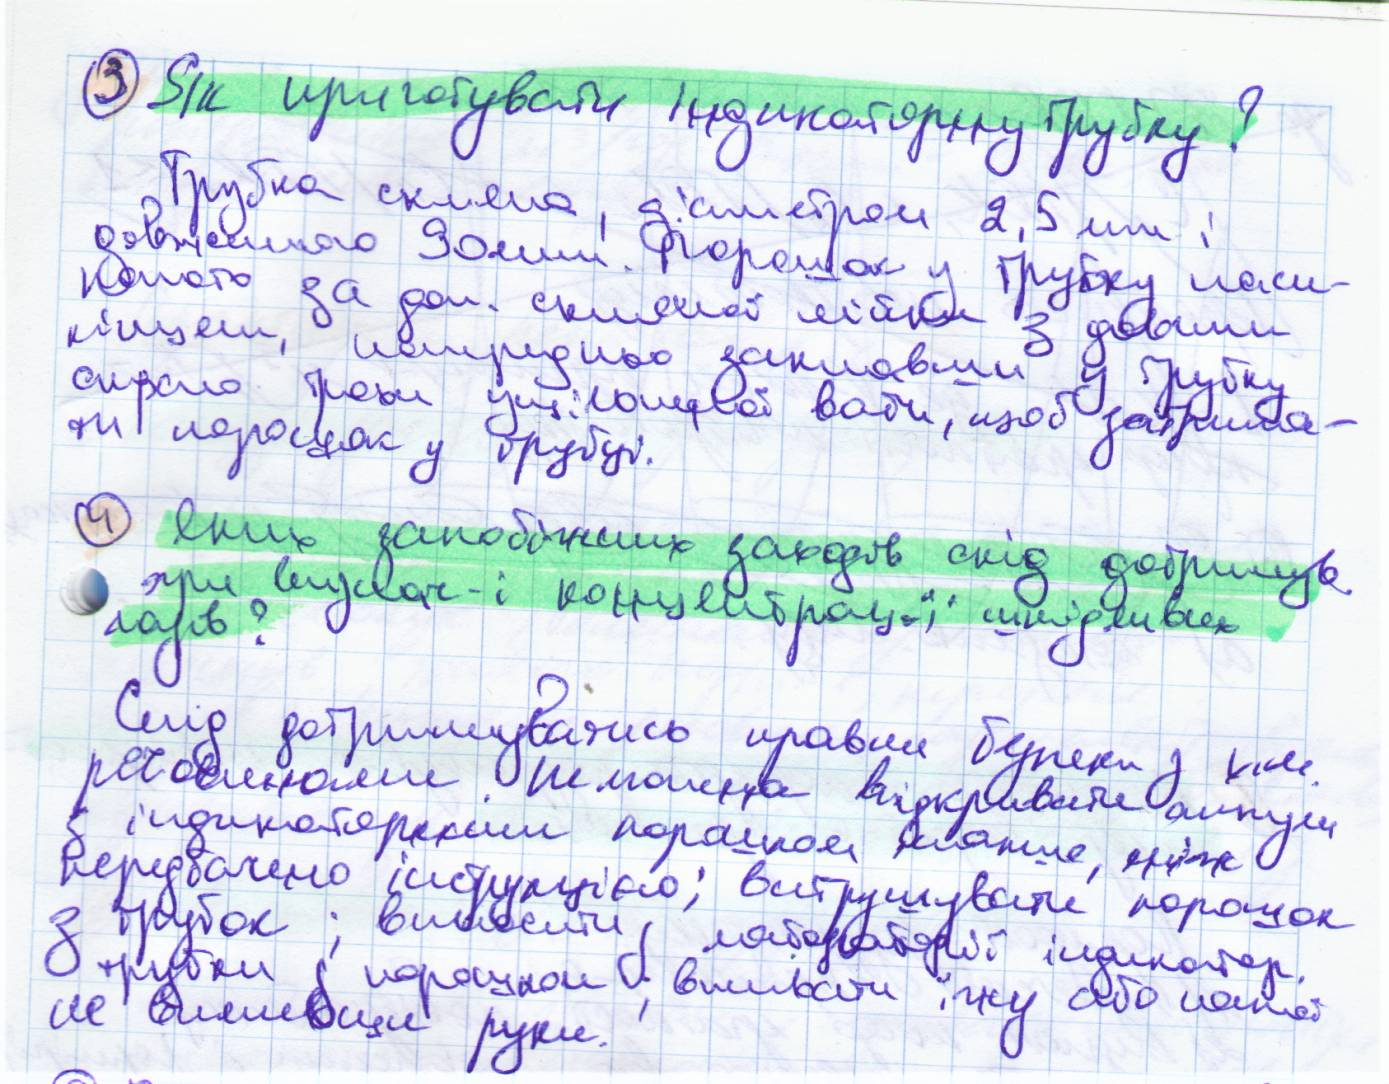 ③ Як приготувати індикаторну трубку?
Трубка скляна, діаметром 2,5 мм і
довжиною 90 мм. Порошок у трубку наси-
пають за доп. скляної лійки з двома
кінцем, попередньо заклавши у трубку
трохи гігроскопічної вати, щоб затрима-
ти порошок у трубці.
④ Яких запобіжних заходів слід дотримув
при визнач-і концентрац-ії шкідливих
газів?
Слід дотримуватись правил безпеки з хім.
речовинами. Не можна відкривати ампули
з індикаторним порошком раніше, ніж
передбачено інструкцією; витрушувати порошок
з трубок; виносити з лабораторії індикатор.
трубки і порошком; вживати їжу або напої
не вимивши руки.